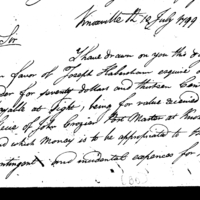 Knoxville 12 July 1799
Sir
I have drawn on you this d
n favor of Joseph Habersham esquire o
der for seventy dollars and thirteen Cen
ayable at Sight, being for value received
ieu of John Crozier Post Master at Knox
nd which Money is to be appropriated to
ontingent and incidental expences for